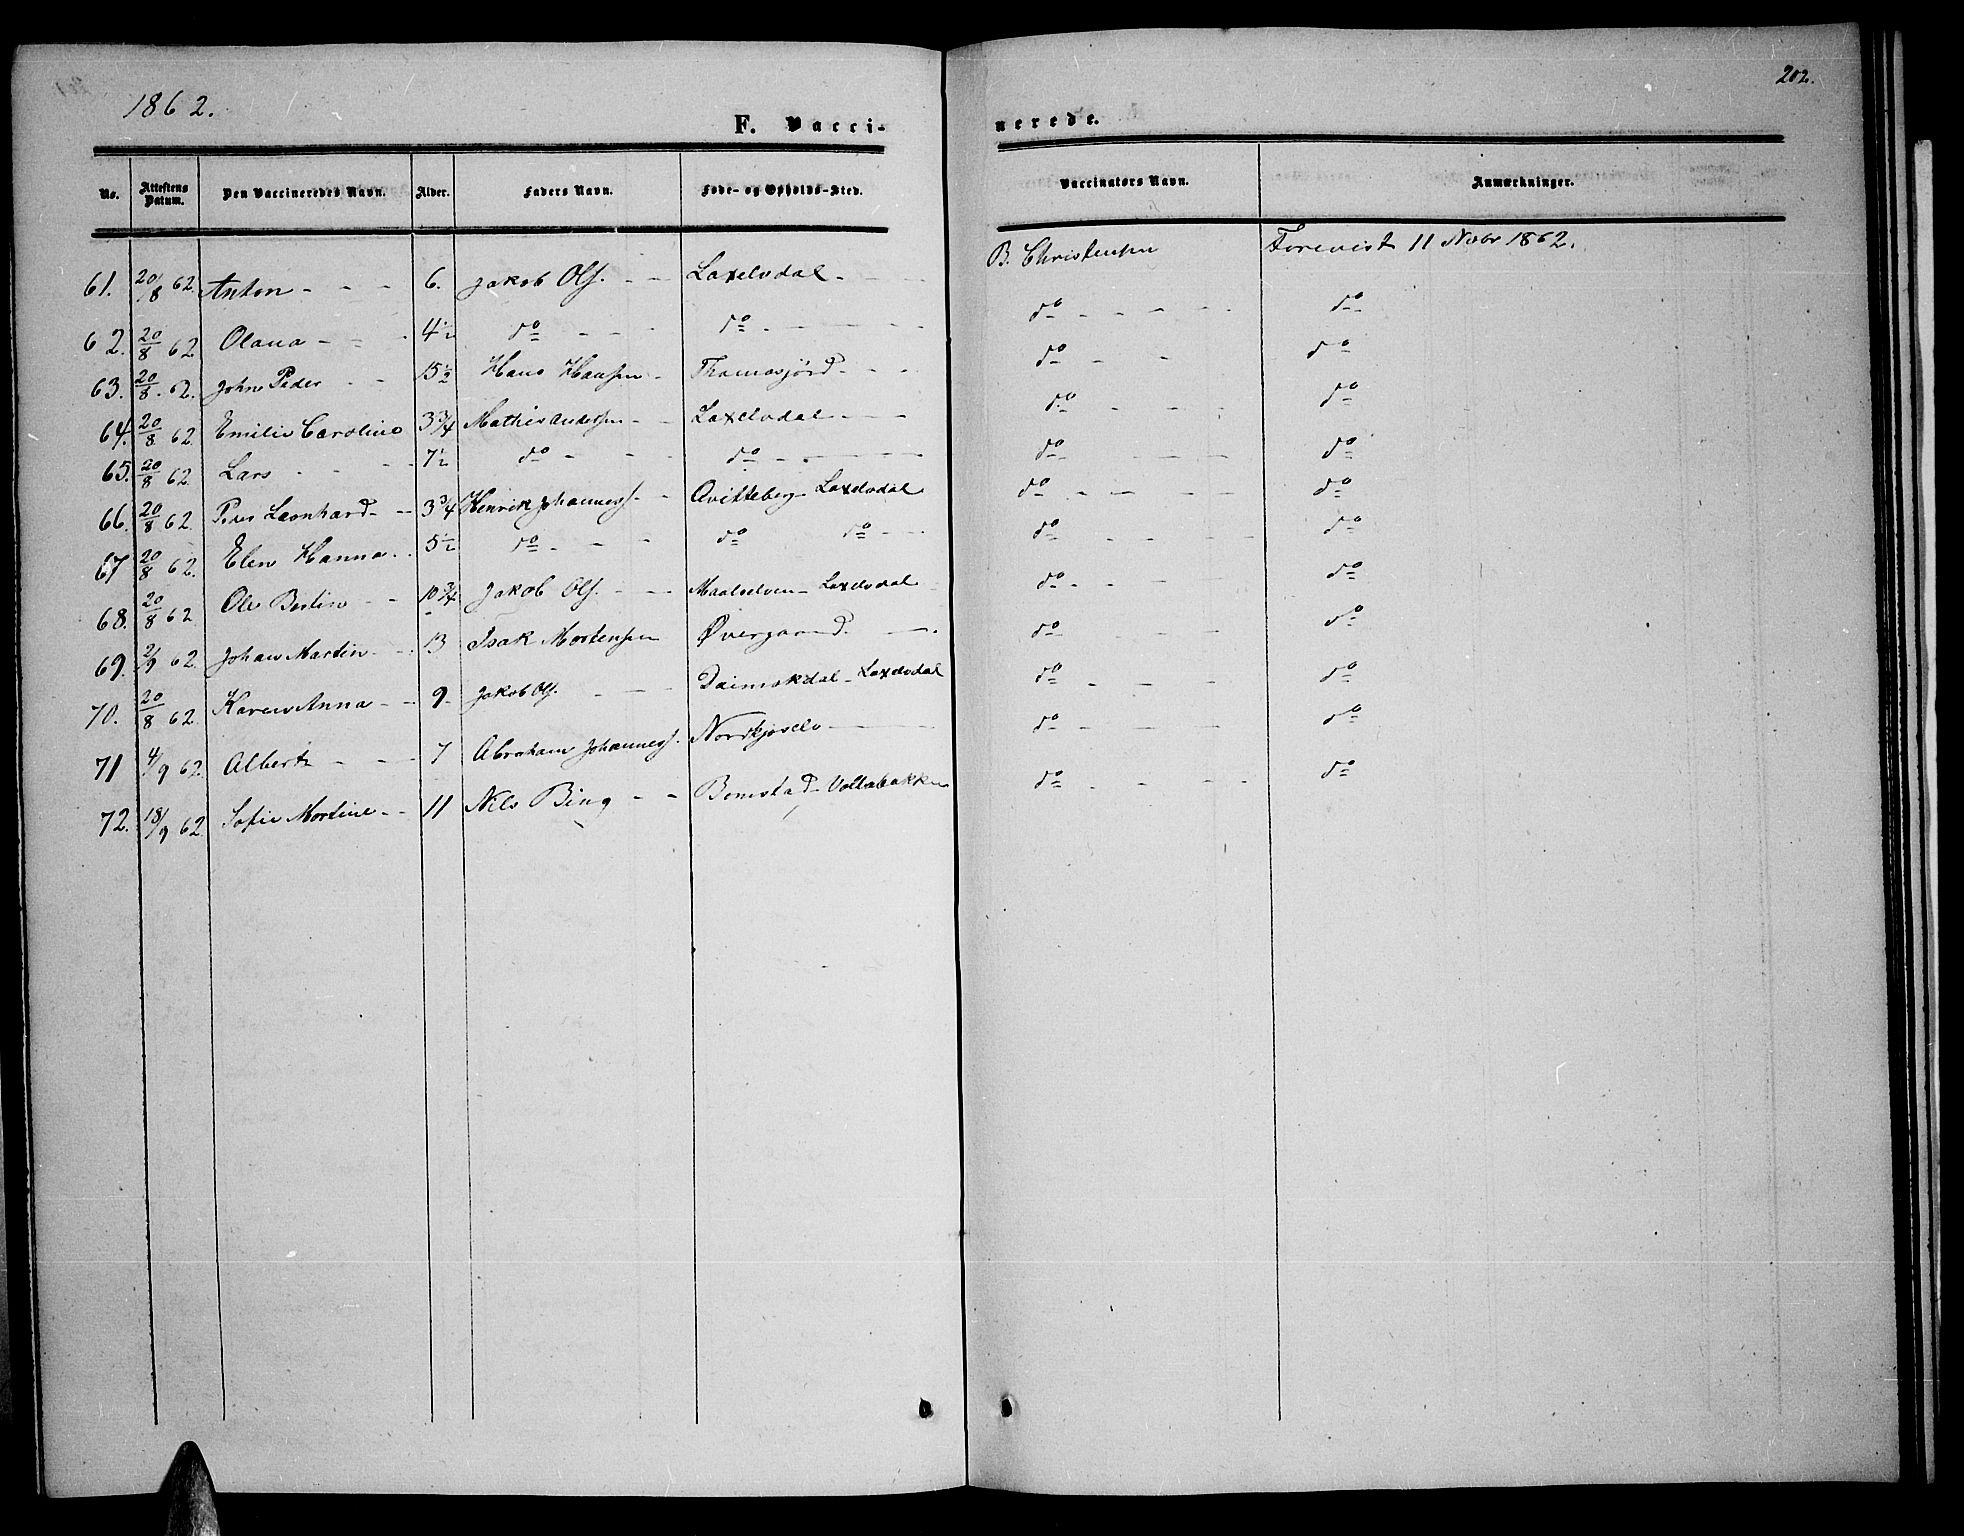 1862.
202.
F. Vacci-
nerede.
No. Attestens Datum. Den Vaccineredes Navn. Alder. Faders Navn. Føde- og Opholds-Sted. Vaccinatørs Navn. Anmærkninger.
61. 20/8 62 Anton - - - 6. Jakob Ols. - - Laxelvdal - - - B. Christensen Forevist 11 Novbr 1862.
62. 20/8 62 Olava - - - 4 1/2 do - - - do - - - do - - - do
63. 20/8 62. John Peder - - 15 1/2 Hans Hansen - Thomasjord - - - do - - do
64. 20/8 62 Emilie Caroline 3 3/4 Mathis Andersen - - Laxelvdal - - - do - - - do
65. 20/8 62 Lars - - - 7 1/2 do - - - do - - - do - - - do
66. 20/8 62 Peder Leonhard - - 3 3/4 Henrik Johanness. - - Qvitteberg - Laxelvdal do - - - - do
67 20/8 62. Elen Hanna - . 5 1/2 do - - - do do - - do - - - - do
68. 20/8 62 Ole Bertin - - 10 3/4 Jakob Ols. - - - Maalselven - Laxelvdal do - - - - do
69. 2/9 62 Johan Martin - - 13 Isak Mortensen Øvergaard. - do - - - do
70. 20/8 62 Karen Anna - - 9 - Jakob Ols. - - - Daimokdal - Laxelvdal do - - - - do
71 4/9 62 Albert - - - 7 Abraham Johanness. Nordkjoselv - do - - - do
72. 18/9 62 Sofie Martine - - 11 Nils Bing - - Bomstad - Voltabakken do - - - - do